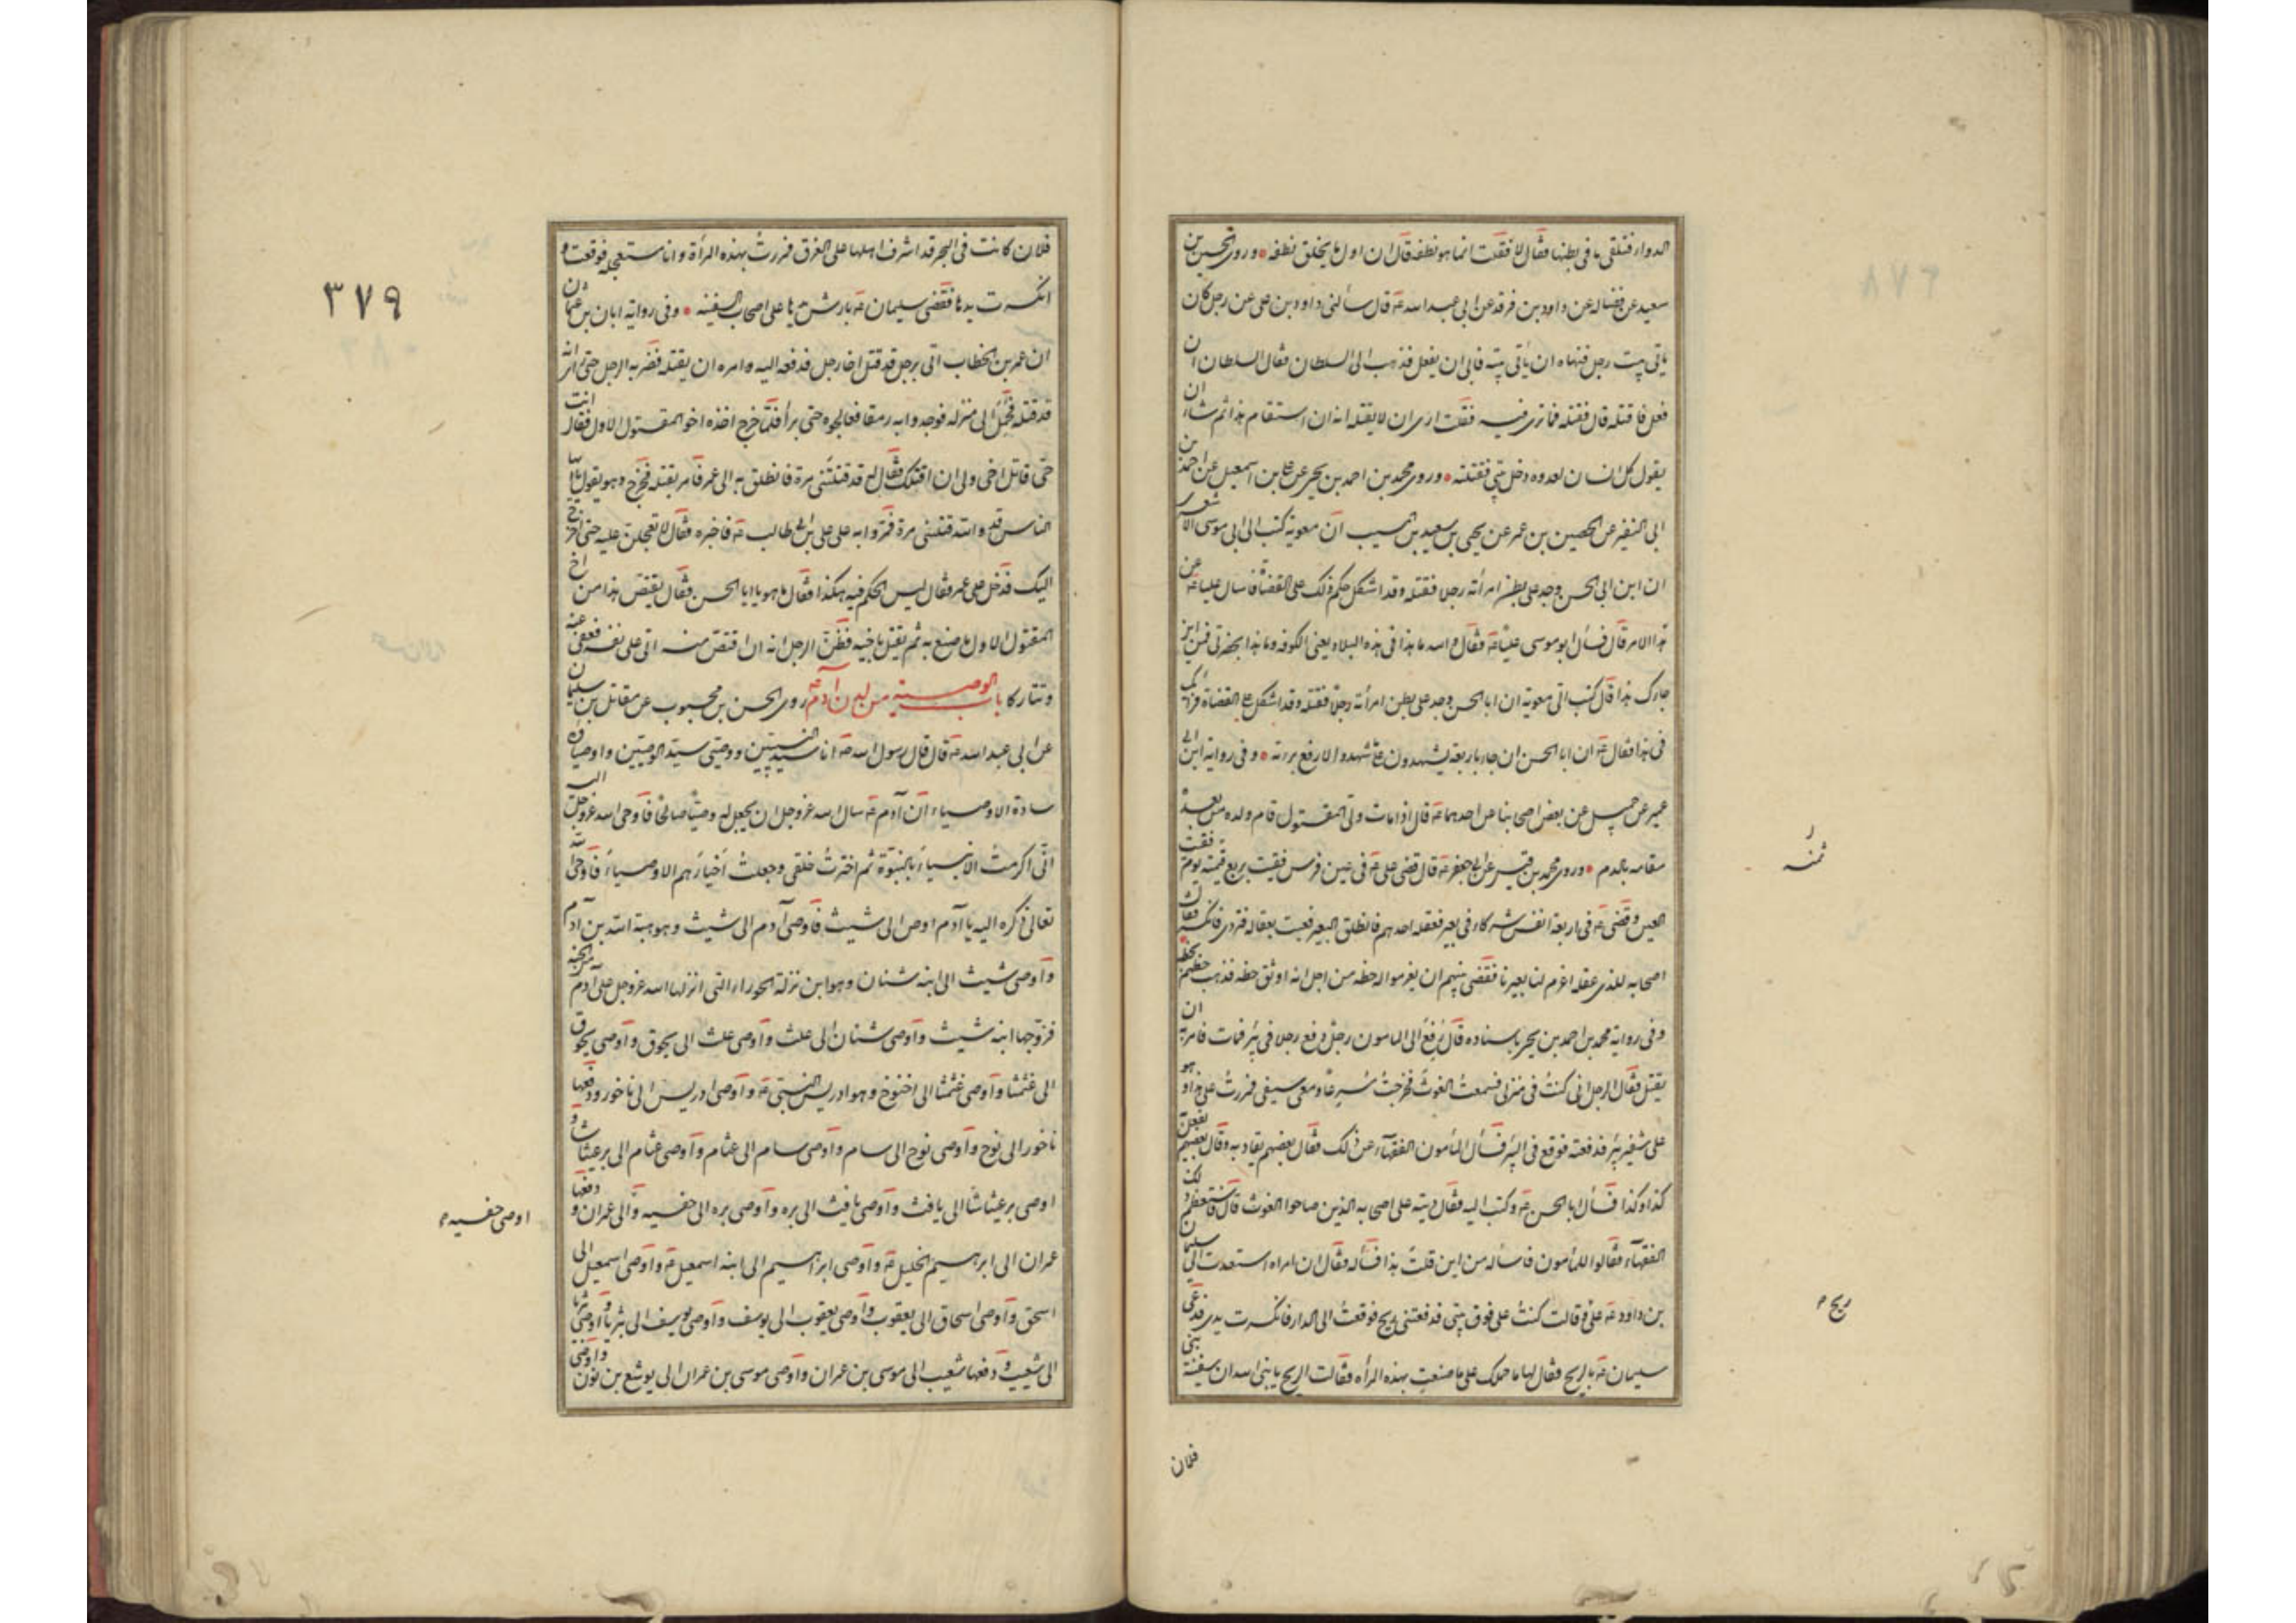 الدواء فتلقى ما فى بطنها فقال لا فقلت انما هو نطفة قال ان اول ما يخلق نطفه وروى الحسين بن
سعيد عن فضاله عن داود بن فرقد عن ابى عبد الله ع قال سألنى داود بن على عن رجل كان
يأتى بيت رجل فنهاه ان يأتى بيته فابى ان يفعل فذهب الى السلطان فقال السلطان ان
فعل فاقتله قال فقتله فما ترى فيه فقلت ارى ان لا يقتله انه ان استقام هذا ثم شاء ان
يقول كل انسان لعدوه دخل بيتى فقتلته وروى محمد بن احمد بن يحيى عن على بن اسمعيل عن احمد بن
ابى النضر عن الحصين بن عمر عن يحيى بن سعيد بن المسيب ان معوية كتب الى ابى موسى الاشعرى
ان ابن ابى الحسن وجد على بطن امرأته رجلا فقتله وقد اشكل حكم ذلك على القضاة فاسال عليا ع عن
هذا الامر قال فسأل ابو موسى عليا ع فقال والله ما هذا فى هذه البلاد يعنى الكوفه وما هذا بحضرتى فمن اين
جاءك هذا قال كتب الى معوية ان ابا الحسن وجد على بطن امرأته رجلا فقتله وقد اشكل على القضاة فرأيك
فى هذا فقال ع ان ابا الحسن ان جاء باربعة يشهدون على ما شهد والا دفع برمته وفى رواية ابن ابى
عمير عن جميل عن بعض اصحابنا عن احدهما ع قال اذا مات ولى المقتول قام ولده من بعده
مقامه بالدم وروى محمد بن قيس عن ابى جعفر ع قال قضى على ع فى عين فرس فقئت بربع قيمته يوم فقئت
العين وقضى ع فى اربعة انفس شركاء فى بعير فعقله احدهم فانطلق البعير فعبث بعقاله فتردى فانكسر فقال
اصحابه للذى عقله اغرم لنا بعيرنا فقضى بينهم ان يغرموا له حظه من اجل انه اوثق حظه فذهب حظهم بحظه
وفى رواية محمد بن احمد بن يحيى باسناده قال رفع الى المامون رجل دفع رجلا فى بئر فمات فامر به ان
يقتل فقال الرجل انى كنت فى منزلى فسمعت الغوث فخرجت مسرعا ومعى سيفى فمررت على هذا وهو
على شفير بئر فدفعته فوقع فى البئر فسأل المأمون الفقهاء عن ذلك فقال بعضهم يقاد به وقال بعضهم يفعل
كذا وكذا فسأل ابا الحسن ع وكتب اليه فقال ديته على اصحابه الذين صاحوا الغوث قال فاستعظم ذلك
الفقهاء فقالوا للمأمون فاسأله من اين قلت هذا فسأله فقال ان امراه استعدت الى سليمان
بن داود ع على فقالت كنت على فوق بيتى فدفعتنى ريح فوقعت الى الدار فانكسرت يدى فدعى
سليمان ع بالريح فقال لها ما حملك على ما صنعت بهذه المرأه فقالت الريح يا نبى الله ان سفينة بنى
فلان
ثمنه
ريح
٣٧٩
فلان كانت فى البحر قد اشرف اهلها على الغرق فمررت بهذه المرأة وانا مستعجله فوقعت و
انكسرت يدها فقضى سليمان ع بارش يدها على اصحاب السفينه وفى رواية ابان بن عثمان
ان عمر بن الخطاب اتى برجل قد قتل اخا رجل فدفعه اليه وامره ان يقتله فضربه الرجل حتى رأى انه
قد قتله فحمل الى منزله فوجدوا به رمقا فعالجوه حتى برأ فلما خرج اخذه اخو المقتول الاول فقال انت
قاتل اخى ولى ان اقتلك فقال له قد قتلتنى مرة فانطلق به الى عمر فامر بقتله فخرج وهو يقول يا ايها
الناس قد والله قتلنى مرة فمروا به على على بن ابى طالب ع فاخبره فقال لا تعجلن عليه حتى اخرج
اليك فدخل على عمر فقال ليس الحكم فيه هكذا فقال ما هو يا ابا الحسن فقال يقتص هذا من اخ
المقتول الاول ما صنع به ثم يقتل باخيه فظن الرجل انه ان اقتص منه اتى على نفسه فعفى عنه
وتتاركا باب الوصية من لدن آدم ع روى الحسن بن محبوب عن مقاتل بن سليمان
عن ابى عبد الله ع قال قال رسول الله ص انا سيد النبيين ووصيى سيد الوصيين واوصياؤه
سادة الاوصياء ان آدم ع سال الله عز وجل ان يجعل له وصيا صالحا فاوحى الله عز وجل اليه
انى اكرمت الانبياء بالنبوة ثم اخترت خلقى وجعلت اخيارهم الاوصياء فاوحى الله
تعالى ذكره اليه يا آدم اوص الى شيث فاوصى آدم الى شيث وهو هبة الله بن آدم
واوصى شيث الى ابنه شبان وهو ابن نزلة الحوراء التى انزلها الله عز وجل على آدم من الجنه
فزوجها ابنه شيث واوصى شبان الى محلث واوصى محلث الى محوق واوصى محوق
الى غثمشا واوصى غثمشا الى اخنوخ وهو ادريس النبى ع واوصى ادريس الى ناخور ودفعها
ناخور الى نوح واوصى نوح الى سام واوصى سام الى عثامر واوصى عثامر الى برعيثاشا و
اوصى برعيثاشا الى يافث واوصى يافث الى بره واوصى بره الى جفسيه والى عمران ودفعها
عمران الى ابرهيم الخليل ع واوصى ابراهيم الى ابنه اسمعيل ع واوصى اسمعيل الى
اسحق واوصى اسحاق الى يعقوب واوصى يعقوب الى يوسف واوصى يوسف الى بثريا واوصى بثريا
الى شعيب ودفعها شعيب الى موسى بن عمران واوصى موسى بن عمران الى يوشع بن نون واوصى
اوصى جفسيه